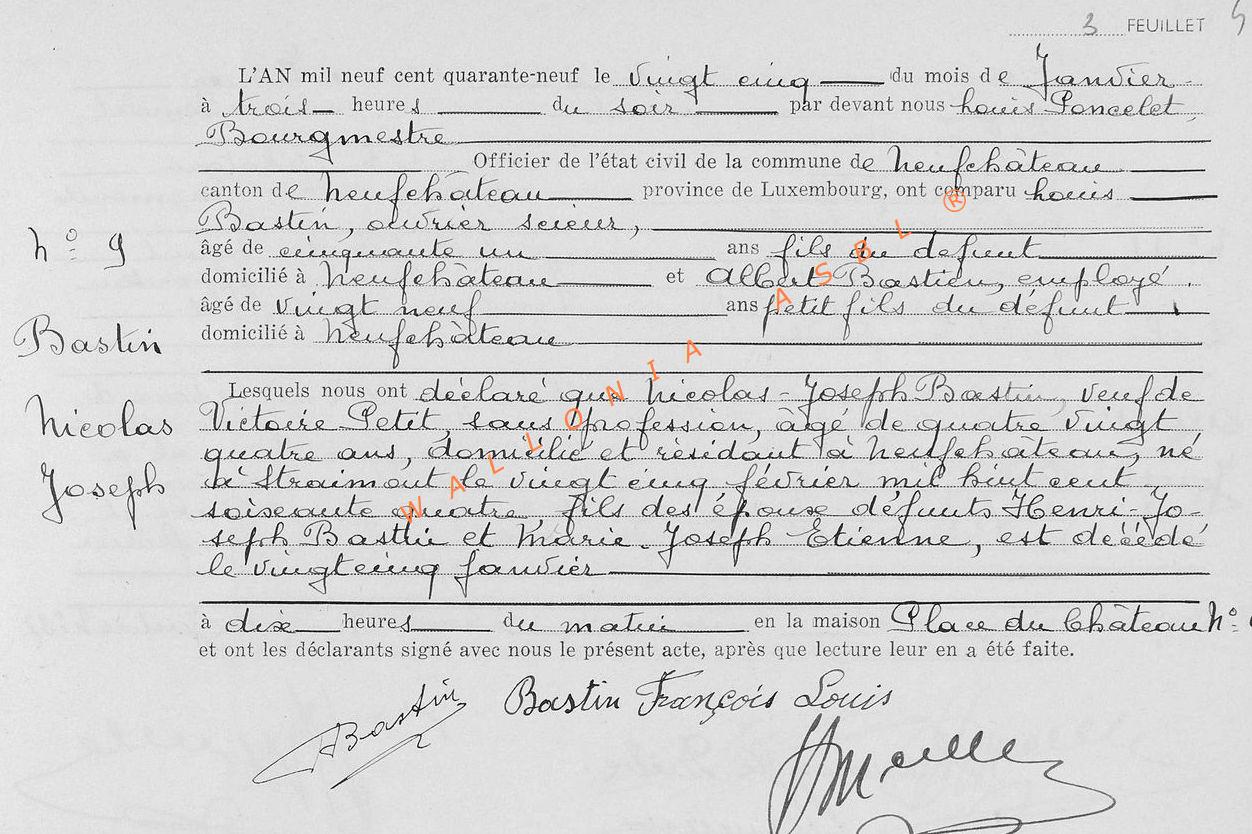 3 FEUILLET
L'AN mil neuf cent quarante-neuf le vingt cinq du mois de Janvier
à trois heures du soir par devant nous Louis Poncelet,
Bourgmestre
Officier de l'état civil de la commune de Neufchâteau
canton de Neufchâteau province de Luxembourg, ont comparu Louis
Bastin, ouvrier scieur,
N° 9
âgé de cinquante un ans fils du défunt
domicilié à Neufchâteau et Albert Bastien, employé
âgé de vingt neuf ans petit fils du défunt
domicilié à Neufchâteau
Bastin
Nicolas
Joseph
Lesquels nous ont déclaré que Nicolas-Joseph Bastin, veuf de
Victoire Petit, sans profession, âgé de quatre vingt
quatre ans, domicilié et résidant à Neufchâteau, né
à Straimont le vingt cinq février mil huit cent
soixante quatre fils des époux défunts Henri-Jo-
seph Bastin et Marie-Joseph Etienne, est décédé
le vingt cinq janvier
à dix heures du matin en la maison Place du Château N°
et ont les déclarants signé avec nous le présent acte, après que lecture leur en a été faite.
Bastin Bastin François Louis
WALLONIA ASBL ®